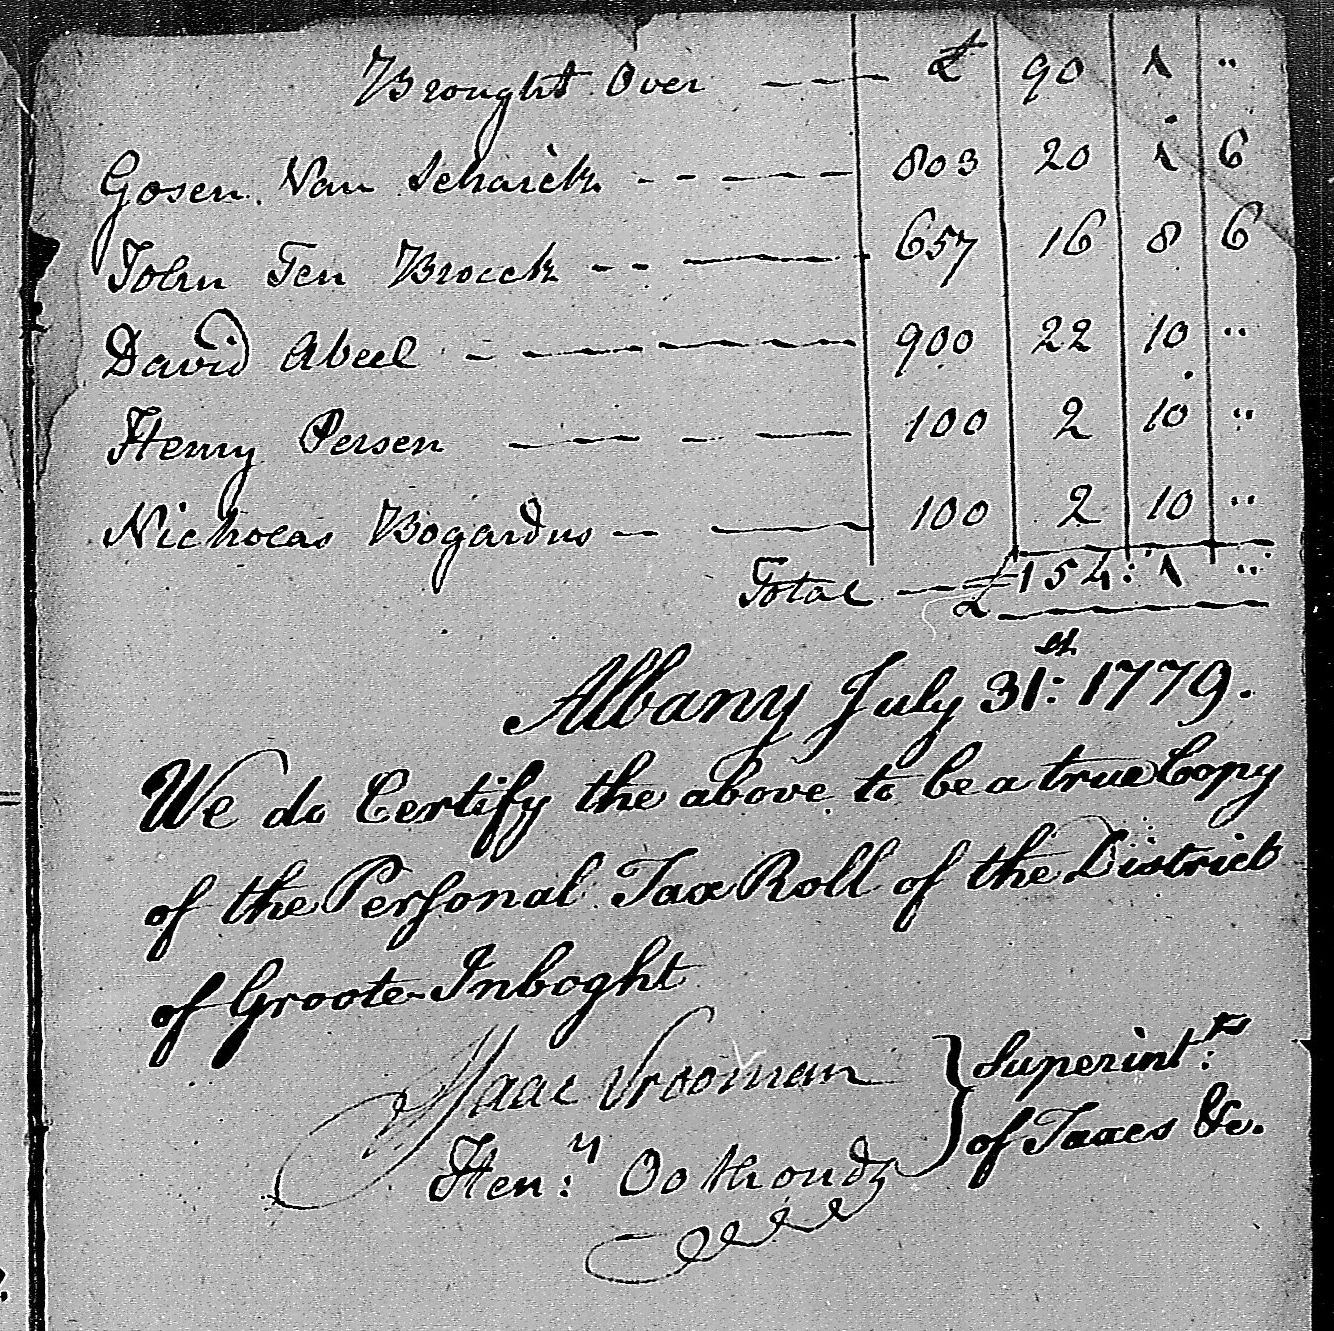 Brought Over — — £ 90 1 "
Gosen Van Schaick - - — — — 803 20 1 6
John Ten Broeck - - — — 657 16 8 6
David Abeel - — — — — — 900 22 10 "
Henry Persen — — - — 100 2 10 "
Nicholas Bogardus — — 100 2 10 "
Total — £154:1 "
Albany July 31:st 1779.
We do Certify the above to be a true Copy
of the Perſonal Tax Roll of the District
of Groote-Inboght
Isaac Vrooman } Superint:ts
Hen:y Oothoudt } of Taxes &c.